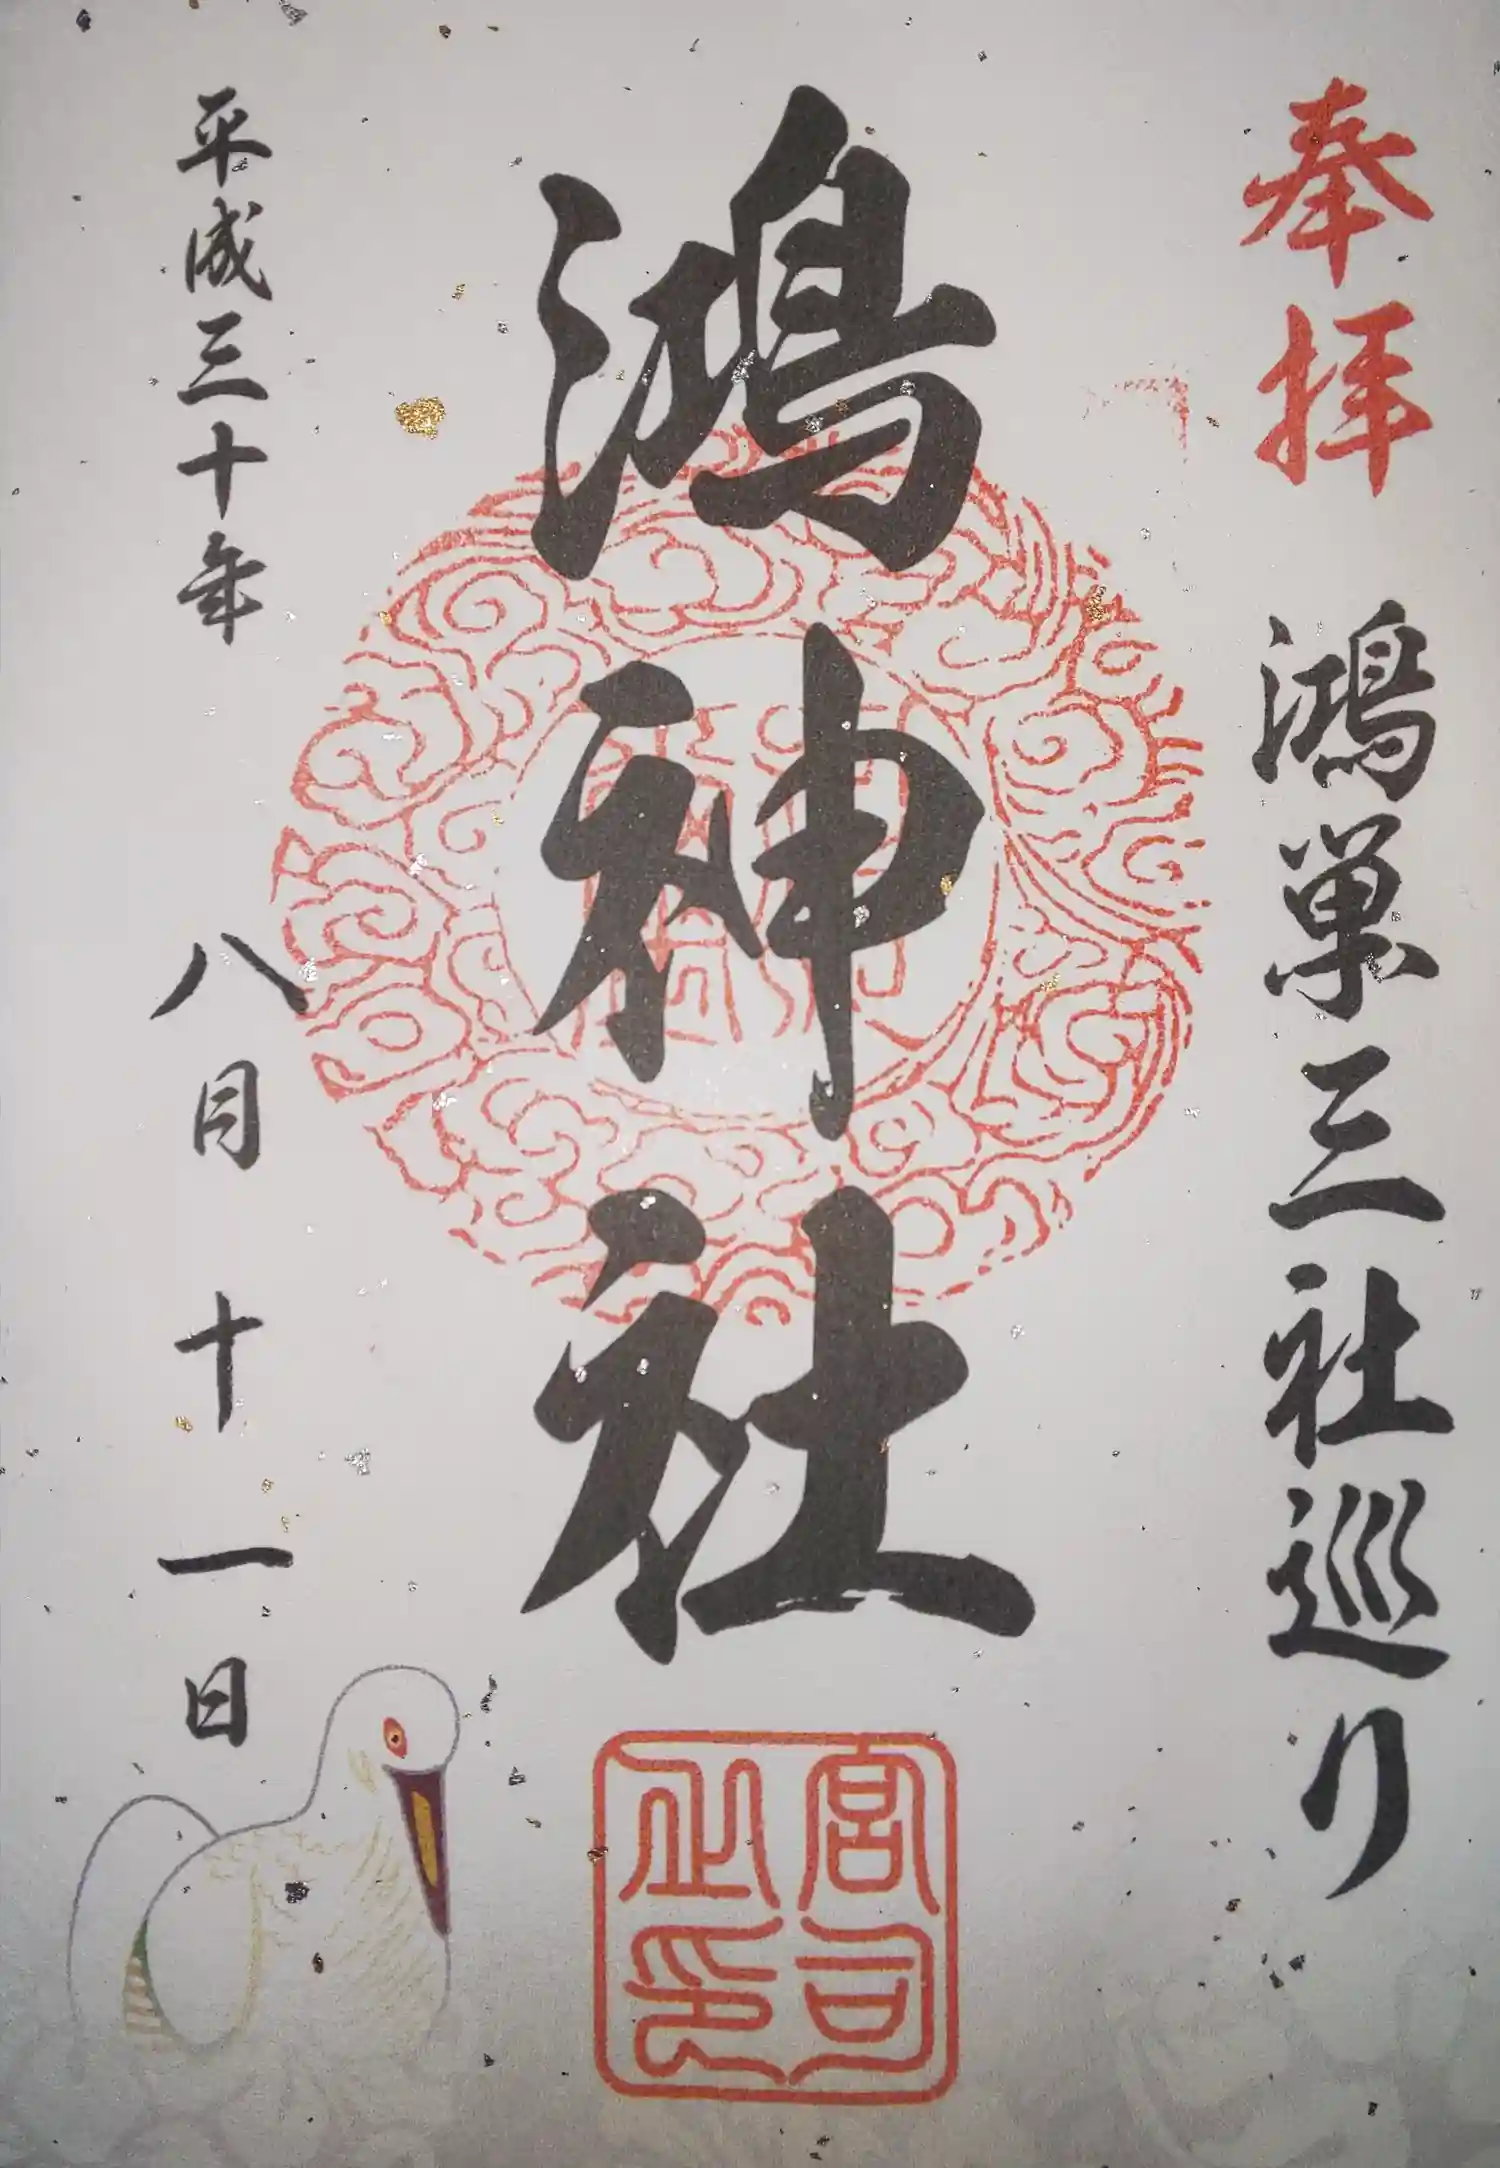 奉拝 鴻巣三社巡り
鴻神社
宮司之印
平成三十年 八月十一日